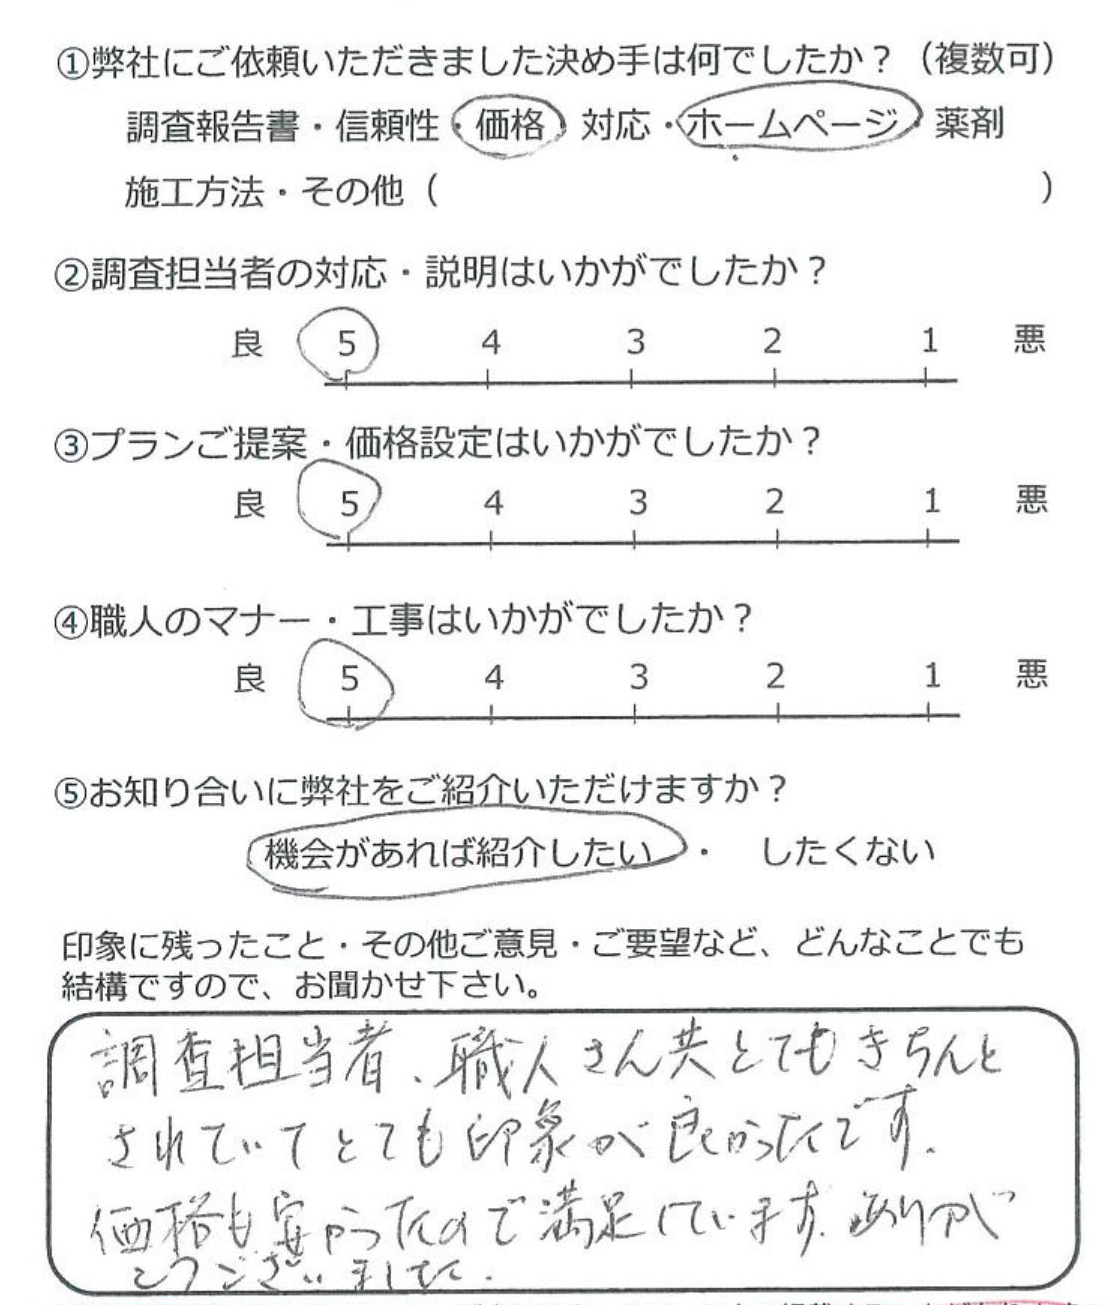 ①弊社にご依頼いただきました決め手は何でしたか？（複数可）
調査報告書・信頼性・価格・対応・ホームページ・薬剤
施工方法・その他（　　　　　　　　　　　　　　　　）
②調査担当者の対応・説明はいかがでしたか？
良 5 4 3 2 1 悪
③プランご提案・価格設定はいかがでしたか？
良 5 4 3 2 1 悪
④職人のマナー・工事はいかがでしたか？
良 5 4 3 2 1 悪
⑤お知り合いに弊社をご紹介いただけますか？
機会があれば紹介したい ・ したくない
印象に残ったこと・その他ご意見・ご要望など、どんなことでも
結構ですので、お聞かせ下さい。
調査担当者、職人さん共とてもきちんと
されていてとても印象が良かったです。
価格も安かったので満足しています。ありが
とうございました。